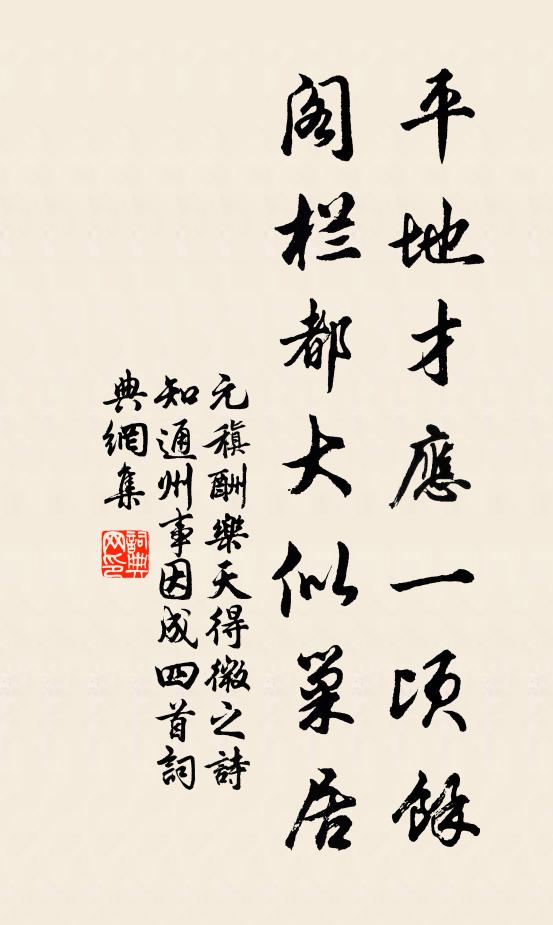 平地才應一頃餘
阁栏都大似巢居
元稹酬樂天得微之詩
知通州事因成四首詞
典網集
詞典网印